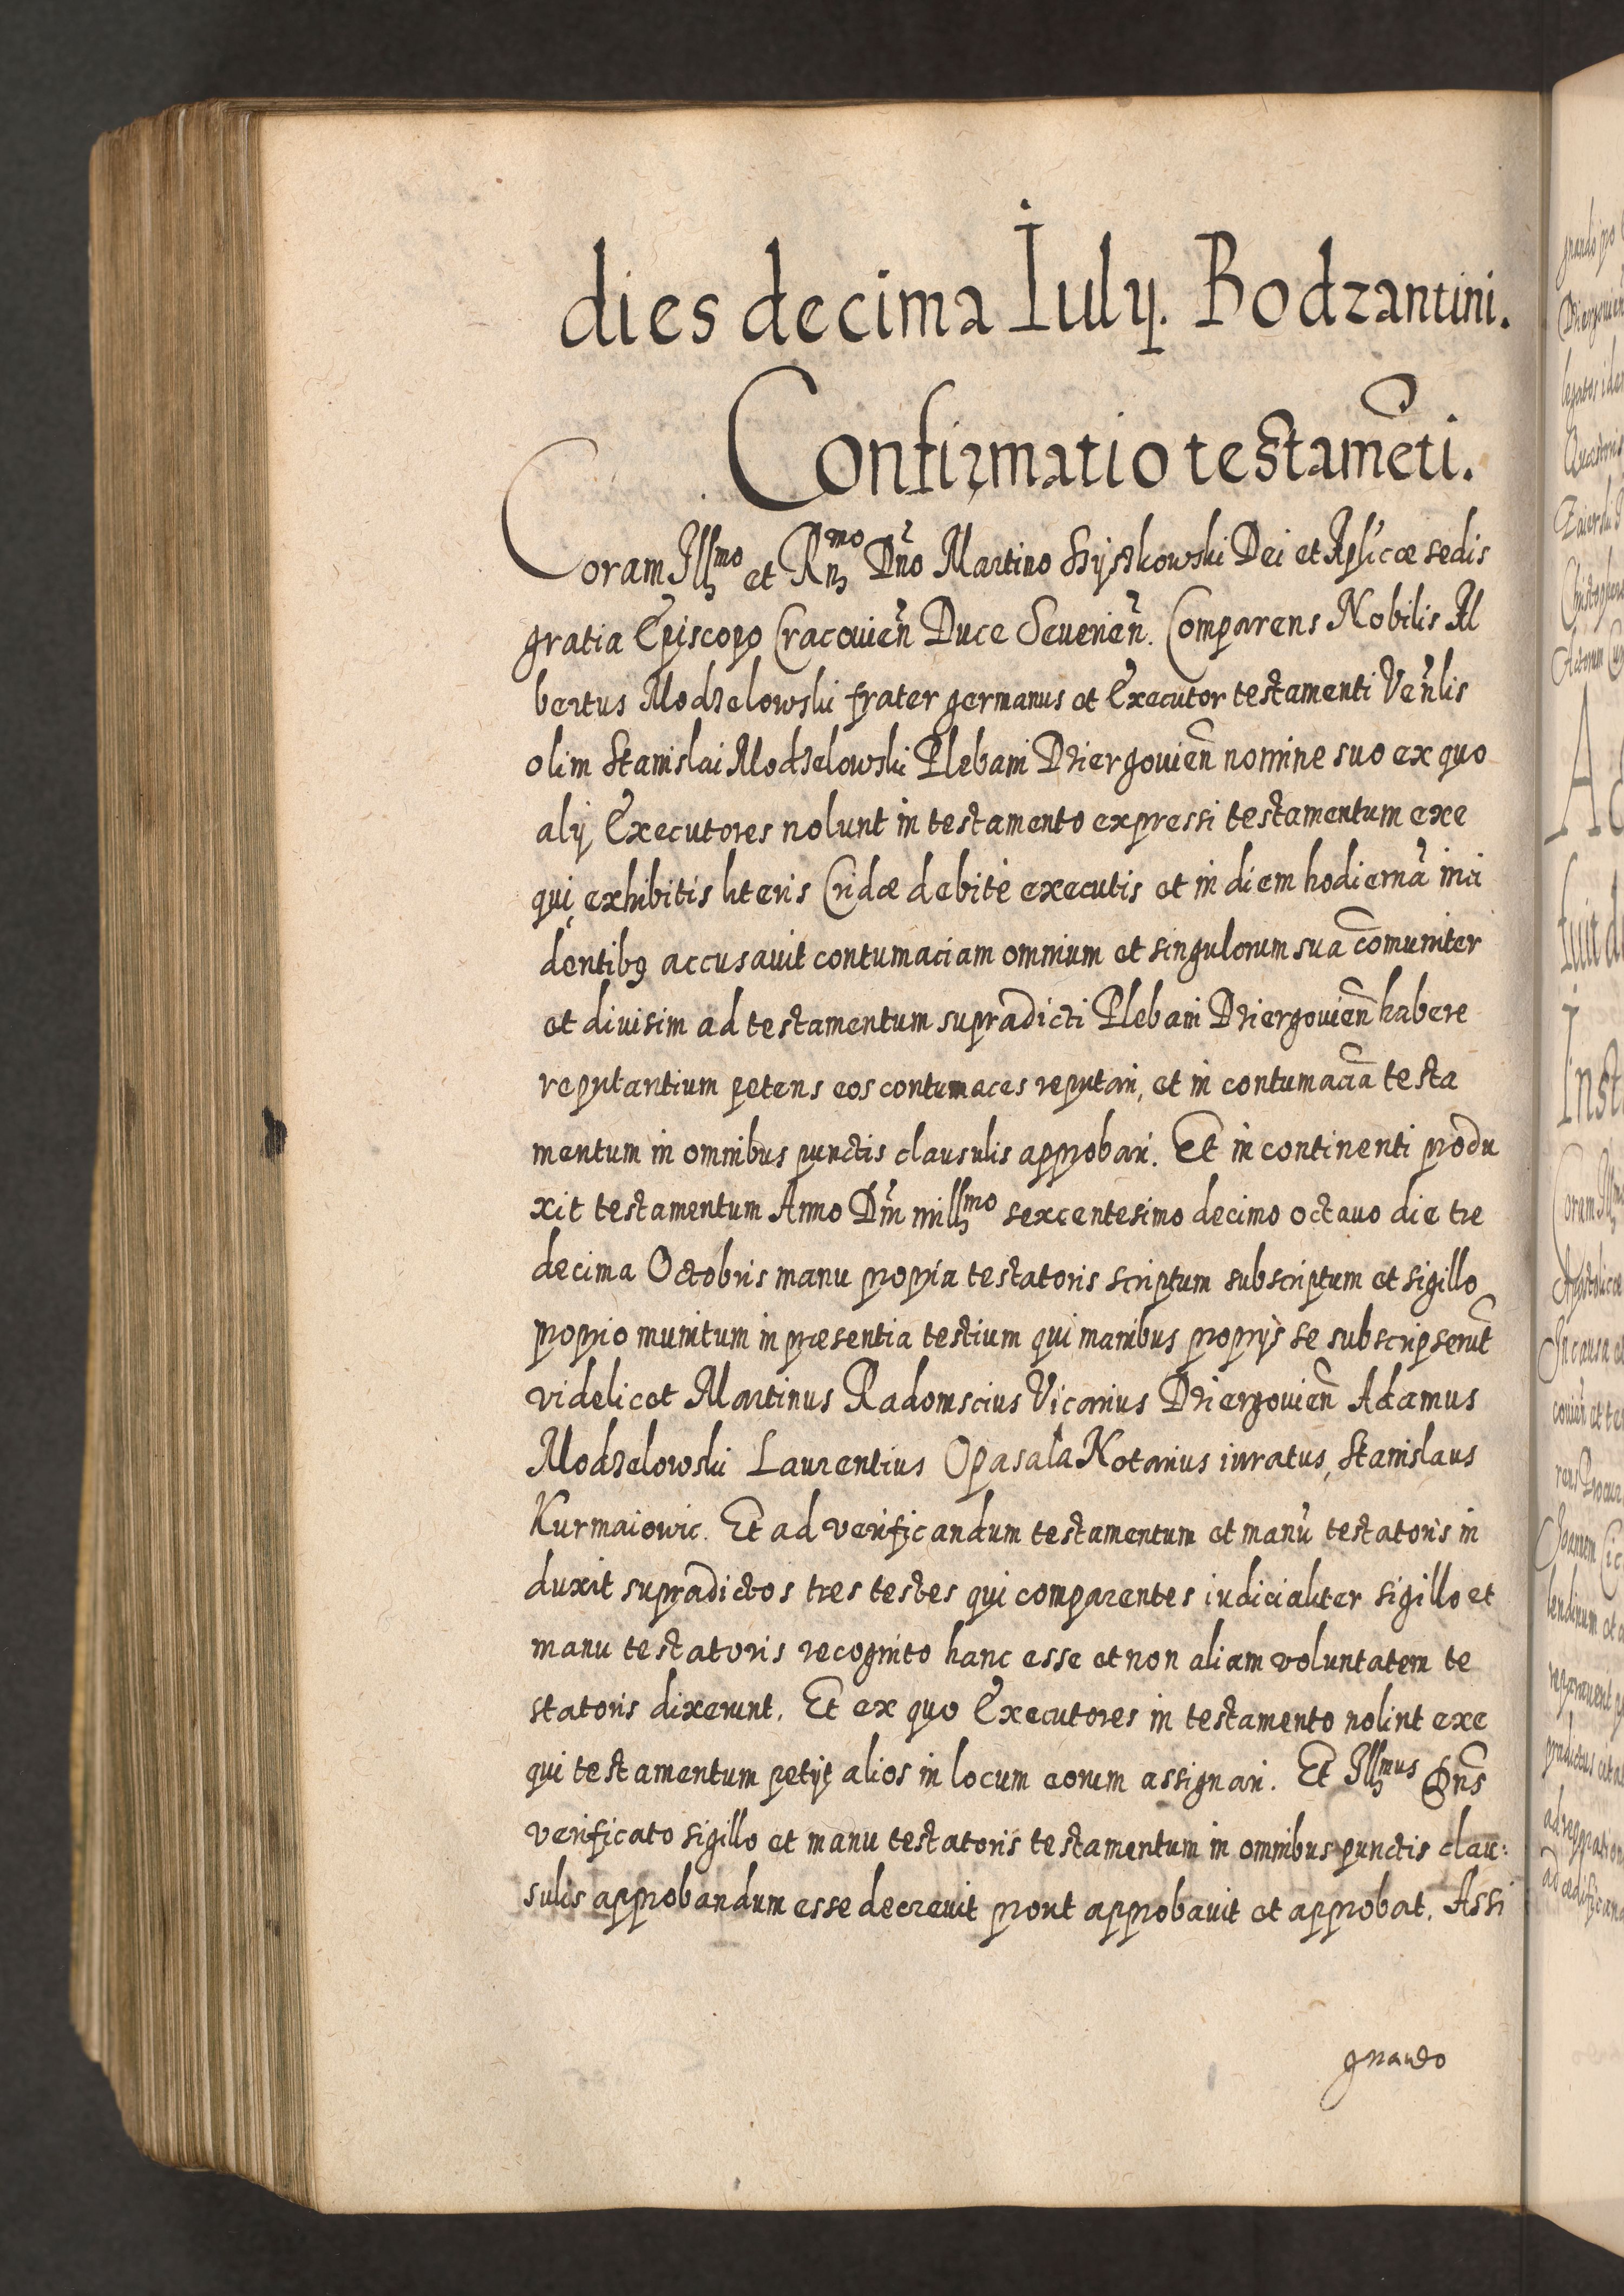 dies decima Iulij. Bodzantini.
Confirmatio testam̃eti.
Coram Illmo et Rmo Dño Martino Szyszkowski Dei et Aplicæ sedis
gratia Episcopo Cracovieñ Duce Severieñ. Comparens Nobilis Al
bertus Modzelowski frater germanus et Executor testamenti Veñlis
olim Stanislai Modzelowski Plebani Dziergovieñ nomine suo ex quo
alij Executores nolunt in testamento expressi testamentum exe
qui, exhibitis literis Cridæ debitè executis et in diem hodiernã inci
dentibq accusavit contumaciam omnium et singulorum sua com̃uniter
et divisim ad testamentum supradicti Plebani Dziergovieñ habere
reputantium petens eos contumaces reputari, et in contumaciã testa
mentum in omnibus punctis clausulis approbari. Et in continenti produ
xit testamentum Anno Dñi millmo sexcentesimo decimo octavo die tre
decima Octobris manu propria testatoris scriptum subscriptum et sigillo
proprio munitum in præsentia testium qui manibus proprijs se subscripserũt
videlicet Martinus Radomscius Vicarius Dziergovieñ Adamus
Modzelowski Laurentius Opasala Notarius iuratus, Stanislaus
Kurmaiowic. Et ad verificandum testamentum et manũ testatoris in
duxit supradictos tres testes qui comparentes iudicialiter sigillo et
manu testatoris recognito hanc esse et non aliam voluntatem te
statoris dixerunt. Et ex quo Executores in testamento nolint exe
qui testamentum petijt alios in locum eorum assignari. Et Illmus Dñs
verificato sigillo et manu testatoris testamentum in omnibus punctis clau:
sulis approbandum esse decrevit prout approbavit et approbat. Assi
gnando